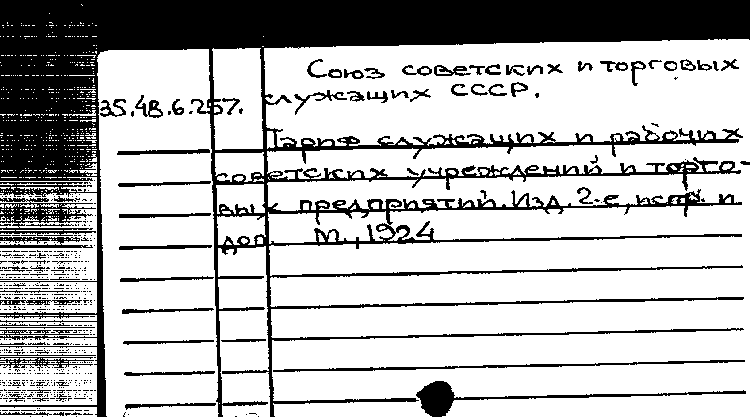 Союз советских и торговых
35.4В.6.257. служащих СССР.
Тариф служащих и рабочих
советских учреждений и торго-
вых предприятий. Изд. 2-е, испр. и
доп. М., 1924